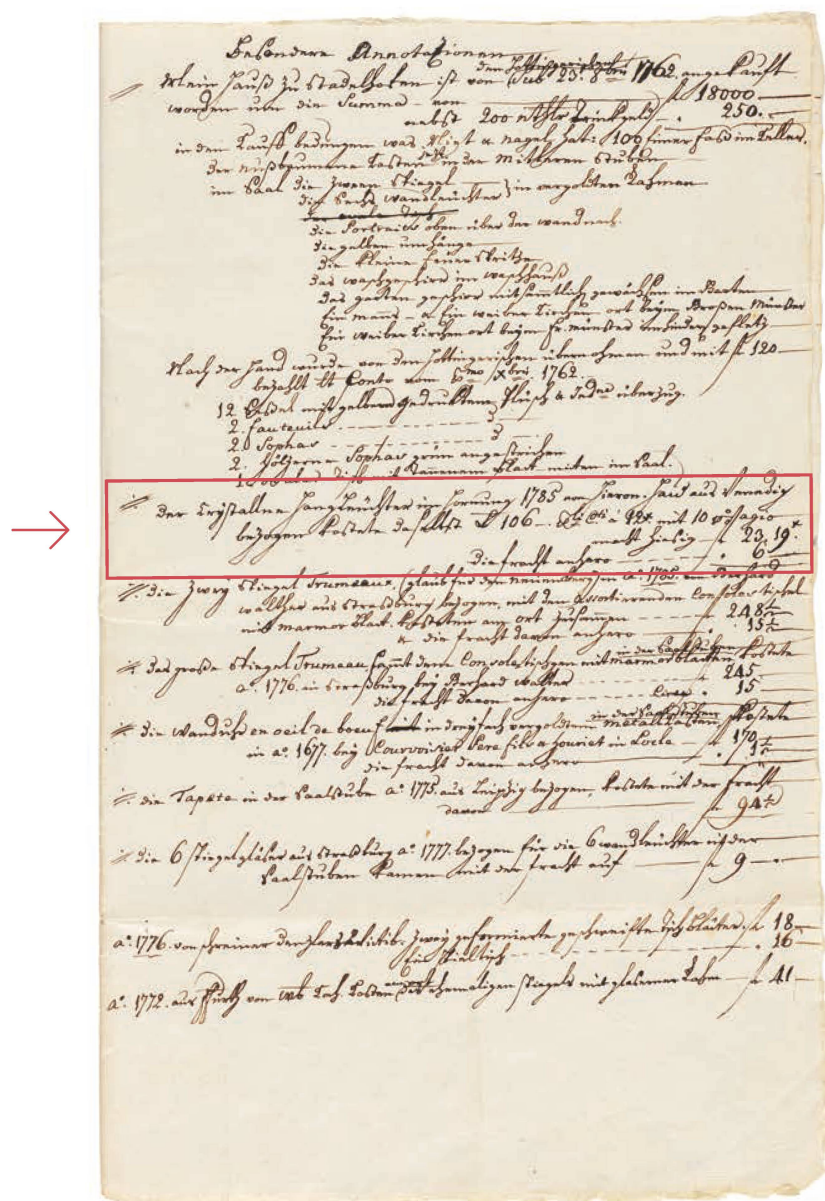 Besondere Annotazionen
Mein Hauß zu Stadelhofen ist von den Wub 23. 8bris 1762. angekauft
worden um die Summa von fl 18000
nebst 200 Trinkgeld 250.
in dem Kauff bedungen was Nigt & nagel hat: 100 Eimer Faß im Keller.
der nußbaumene Kasten in der mittleren Stuben
im Saal die zween Spiegel
die Sechs Wandleüchter in vergoldten Rahmen
die Portraits oben über der wand
die gelben umhänge
die kleine Feuer Spritze
das waschgeschirr im waschhauß
das garten geschirr mit sämmtlich gewächsen im Garten
Ein manns- & Ein weiber Kirchen ort beÿm Großen Münster
Ein weiber Kirchenort beÿm Fr. münster
Nach der Hand wurde von den Hottingerischen übernohmen und mit fl 120
bezahlt lt Conto vom 5mo Xbris 1762.
12 Seßel mit gelbem gedruktem Plüsch & überzug.
2. Fauteuils
2. Sophas
2. Hölzerne Sophas grün angestrichen
1. ovaler Tisch mit Tannenem Blatt mitten im Saal.
der Crystallne Hangleüchter im Hornung 1785 von Hieron. Haid aus Venedig
bezogen kostete daselbst 106 mit 10 agio
macht hiesig fl 23.19.
die fracht anhero 6.
die Zweÿ Spiegel Trumeaux, (glaub für den Neuenberg) in ao. 1785. von Berhard
Walther aus Strasburg bezogen, mit den assortierenden Consolestischel
mit marmorblatt. kosteten am ort zusammen 248½
& die fracht davon anhero 15½
das große Spiegel Trumeau, samt dem Consoletischgen mit marmorblatten, kostete
ao. 1776. in Straßburg beÿ Berhard Walter 245
die fracht davon anhero circa 15
die wanduhr en oeil de boeuf in dreÿfach vergoldtem metall kostete
in ao. 1677. beÿ Courvoisier Pere fils & Houriet in Locle 170
die fracht davon anhero 1½
die Tapete in der Saalstube ao. 1775. aus Leipzig bezogen, kostete mit der fracht
davon fl 94½
die 6 Spiegelgläser aus Strasburg ao. 1777. bezogen für die 6 wandleüchter in der
Saalstuben kamen mit der fracht auf fl 9
ao. 1776. von schreiner zweÿ geschweifte Tischblätter fl 18
Ein Spieltisch 16
ao. 1772. aus Fürth von ehemaligen Spiegels mit glaserner Rahm fl 41